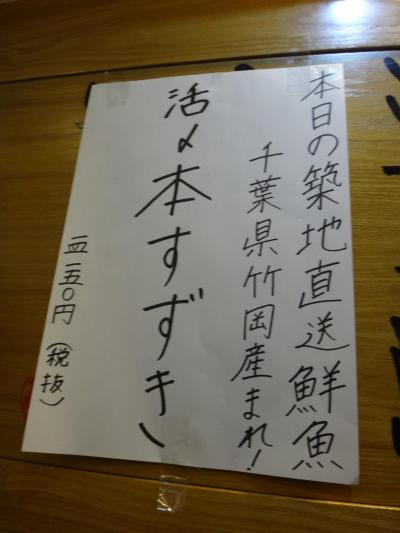 本日の築地直送鮮魚
千葉県竹岡産まれ!
活〆本すずき
一四二五〇円(税抜)